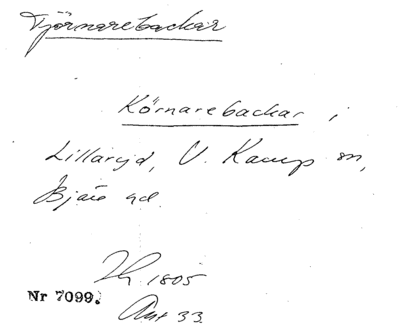 Tjörnarebackar
Körnarebackar i
Lillaryd, V. Karup sn,
Bjäre hd.
1805
Nr 7099.
Akt 33